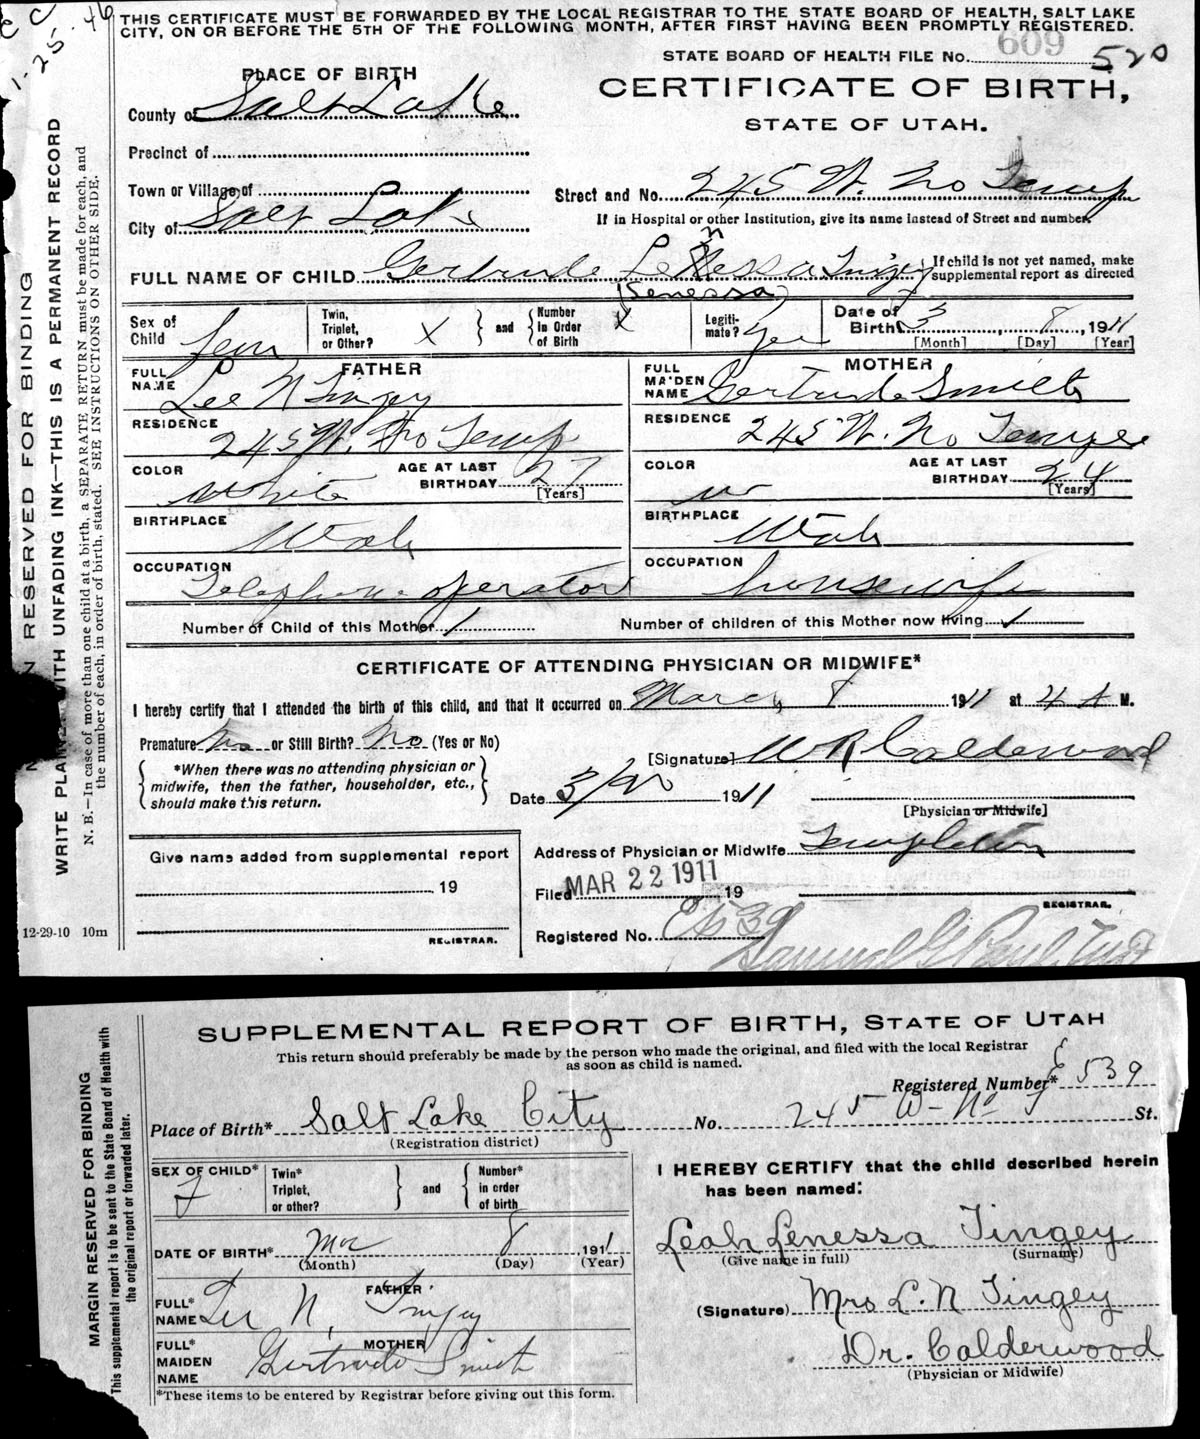 THIS CERTIFICATE MUST BE FORWARDED BY THE LOCAL REGISTRAR TO THE STATE BOARD OF HEALTH, SALT LAKE
CITY, ON OR BEFORE THE 5TH OF THE FOLLOWING MONTH, AFTER FIRST HAVING BEEN PROMPTLY REGISTERED.
1-25-46
STATE BOARD OF HEALTH FILE No. 609 520
PLACE OF BIRTH
CERTIFICATE OF BIRTH,
STATE OF UTAH.
County of Salt Lake
Precinct of
Town or Village of
City of Salt Lake
Street and No. 245 W. No Temp
If in Hospital or other Institution, give its name instead of Street and number.
FULL NAME OF CHILD Gertrude Lenessa Tingey
(Senessa)
If child is not yet named, make
supplemental report as directed
Sex of Child Fem
Twin, Triplet, or Other? X and Number in Order of Birth X
Legitimate? Yes
Date of Birth 3 8, 1911
[Month] [Day] [Year]
FATHER
FULL NAME Lee N Tingey
RESIDENCE 245 W. No Temp
COLOR White
AGE AT LAST BIRTHDAY 27
[Years]
BIRTHPLACE Utah
OCCUPATION Telephone operator
MOTHER
FULL MAIDEN NAME Gertrude Smith
RESIDENCE 245 W. No Temple
COLOR W
AGE AT LAST BIRTHDAY 24
[Years]
BIRTHPLACE Utah
OCCUPATION housewife
Number of Child of this Mother 1
Number of children of this Mother now living 1
CERTIFICATE OF ATTENDING PHYSICIAN OR MIDWIFE*
I hereby certify that I attended the birth of this child, and that it occurred on March 8 1911 at 4 A M.
Premature No or Still Birth? No (Yes or No)
*When there was no attending physician or
midwife, then the father, householder, etc.,
should make this return.
[Signature] W R Calderwood
Date 3/20 1911
[Physician or Midwife]
Address of Physician or Midwife Templeton
Give name added from supplemental report
19
REGISTRAR.
Filed MAR 22 1911 19
REGISTRAR.
Registered No. E 539
12-29-10 10m
RESERVED FOR BINDING
WRITE PLAINLY WITH UNFADING INK—THIS IS A PERMANENT RECORD
N. B.—In case of more than one child at a birth, a SEPARATE RETURN must be made for each, and
the number of each, in order of birth, stated. SEE INSTRUCTIONS ON OTHER SIDE.
SUPPLEMENTAL REPORT OF BIRTH, STATE OF UTAH
This return should preferably be made by the person who made the original, and filed with the local Registrar
as soon as child is named.
Registered Number* E 539
Place of Birth* Salt Lake City No. 245 W- No T St.
(Registration district)
SEX OF CHILD* F
Twin* Triplet, or other? and Number* in order of birth
DATE OF BIRTH* Mar 8, 1911
(Month) (Day) (Year)
FATHER
FULL* NAME Lee N. Tingey
MOTHER
FULL* MAIDEN NAME Gertrude Smith
*These items to be entered by Registrar before giving out this form.
I HEREBY CERTIFY that the child described herein
has been named:
Leah Lenessa Tingey
(Give name in full) (Surname)
(Signature) Mrs L. N Tingey
Dr. Calderwood
(Physician or Midwife)
MARGIN RESERVED FOR BINDING
This supplemental report is to be sent to the State Board of Health with
the original report or forwarded later.